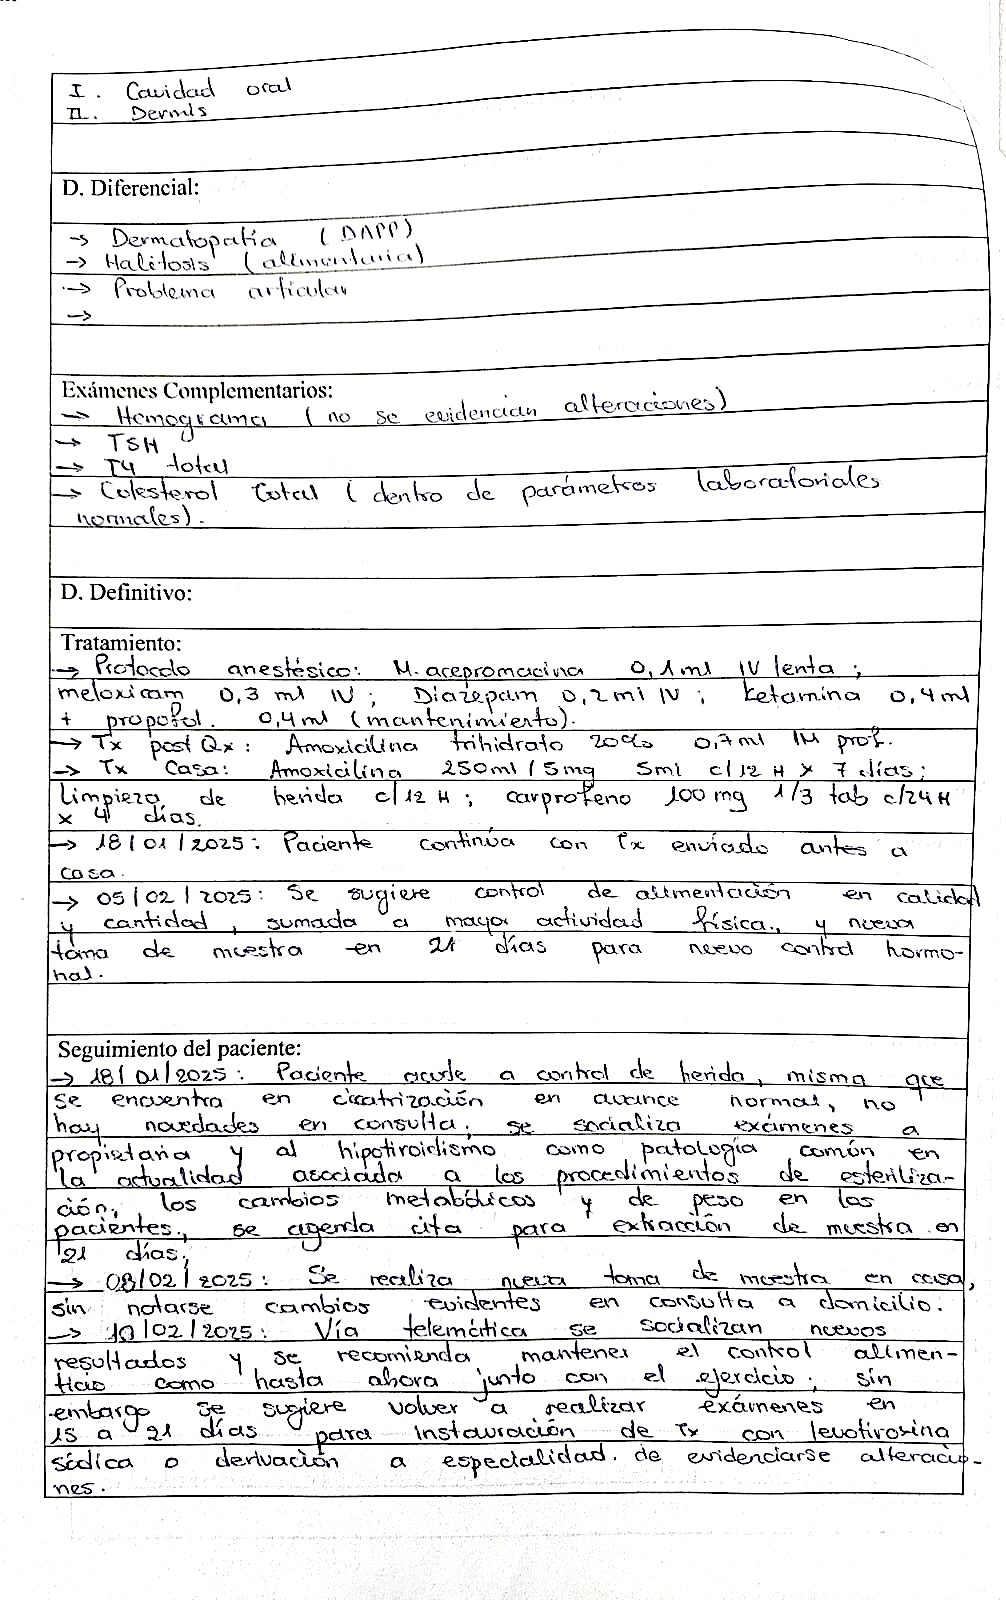 I. Cavidad oral
II. Dermis
D. Diferencial:
→ Dermatopatía (DAPP)
→ Halitosis (alimentaria)
→ Problema articular
→
Exámenes Complementarios:
→ Hemograma (no se evidencian alteraciones)
→ TSH
→ T4 total
→ Colesterol total (dentro de parámetros laboratoriales
normales).
D. Definitivo:
Tratamiento:
→ Protocolo anestésico: M. acepromacina 0,1ml IV lenta;
meloxicam 0,3 ml IV; Diazepam 0,2ml IV; ketamina 0,4ml
+ propofol. 0,4ml (mantenimiento).
→ Tx post Qx: Amoxicilina trihidrato 20% 0,7ml IM prof.
→ Tx Casa: Amoxicilina 250ml/5mg 5ml c/12 H x 7 días;
Limpieza de herida c/12 H; carprofeno 100mg 1/3 tab c/24H
x 4 días.
→ 18/01/2025: Paciente continúa con tx enviado antes a
casa.
→ 05/02/2025: Se sugiere control de alimentación en calidad
y cantidad, sumada a mayor actividad física., y nueva
toma de muestra en 21 días para nuevo control hormo-
nal.
Seguimiento del paciente:
→ 18/01/2025: Paciente acude a control de herida, misma que
se encuentra en cicatrización en avance normal, no
hay novedades en consulta; se socializa exámenes a
propietaria y al hipotiroidismo como patología común en
la actualidad asociada a los procedimientos de esteriliza-
ción, los cambios metabólicos y de peso en los
pacientes., se agenda cita para extracción de muestra en
21 días.
→ 08/02/2025: Se realiza nueva toma de muestra en casa,
sin notarse cambios evidentes en consulta a domicilio.
→ 10/02/2025: Vía telemática se socializan nuevos
resultados y se recomienda mantener el control alimen-
ticio como hasta ahora junto con el ejercicio; sin
embargo se sugiere volver a realizar exámenes en
15 a 21 días para instauración de Tx con levotiroxina
sódica o derivación a especialidad. de evidenciarse alteracio-
nes.